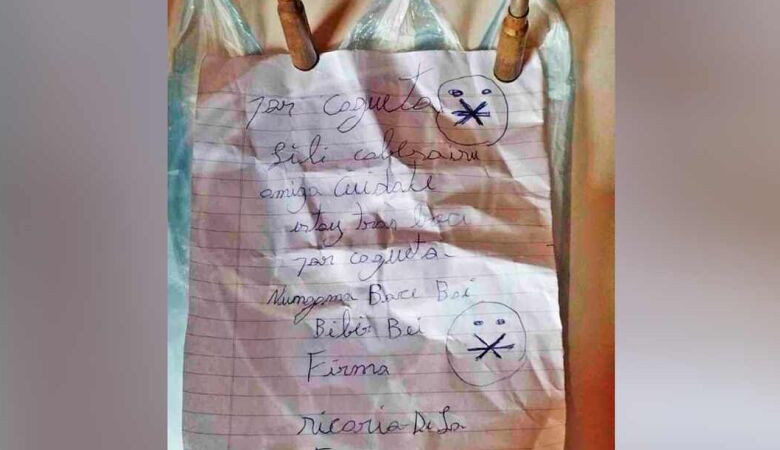 par coqueta
Lili cabesairu
amiga Cuidate
estoy tras baci
par coqueta
Mungama Baci Bai
Bibir Bei
Firma
ricaria De La